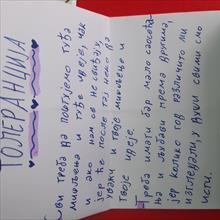 ТОЛЕРАНЦИЈА
Сви треба да поштујемо туђа
мишљења и туђе идеје, чак
и ако нам се не свиђају,
јер ће после тај неко да
уважи и твоје мишљење и
твоје идеје.
Треба имати бар мало саосећа
ња и љубави према другима,
јер колико год различито ми
изгледали, у души свими смо
исти.